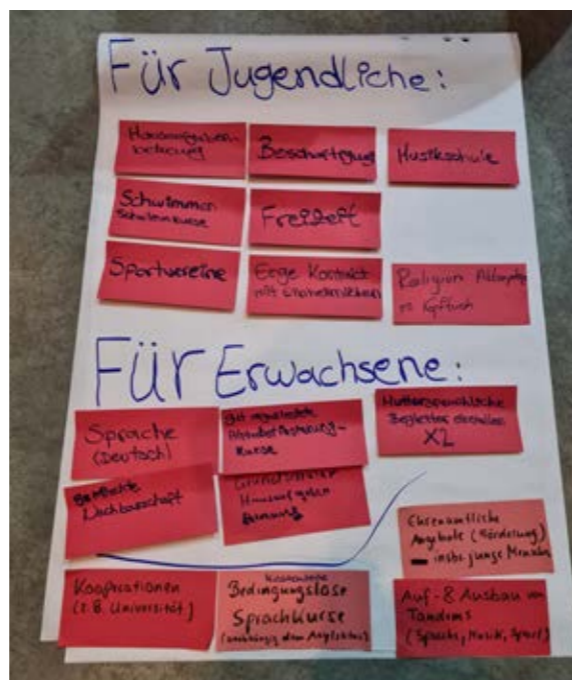 Für Jugendliche:
Hausaufgaben-
Beschäftigung
Musikschule
Schwimmen
Schwimmkurse
Freizeit
Sportvereine
Enge Kontakt
mit Einheimischen
Religion
Kopftuch
Für Erwachsene:
Sprache
(Deutsch)
Kurse
Muttersprachliche
Begleiter
X2
Nachbarschaft
Hausaufgaben
Ehrenamtliche
Angebote (Förderung)
insb. junge Menschen
Kooperationen
(z.B. Universität)
Kostenlose
Bedingungslose
Sprachkurse
Auf- & Ausbau von
Tandems
(Sprache, Musik, Sport)